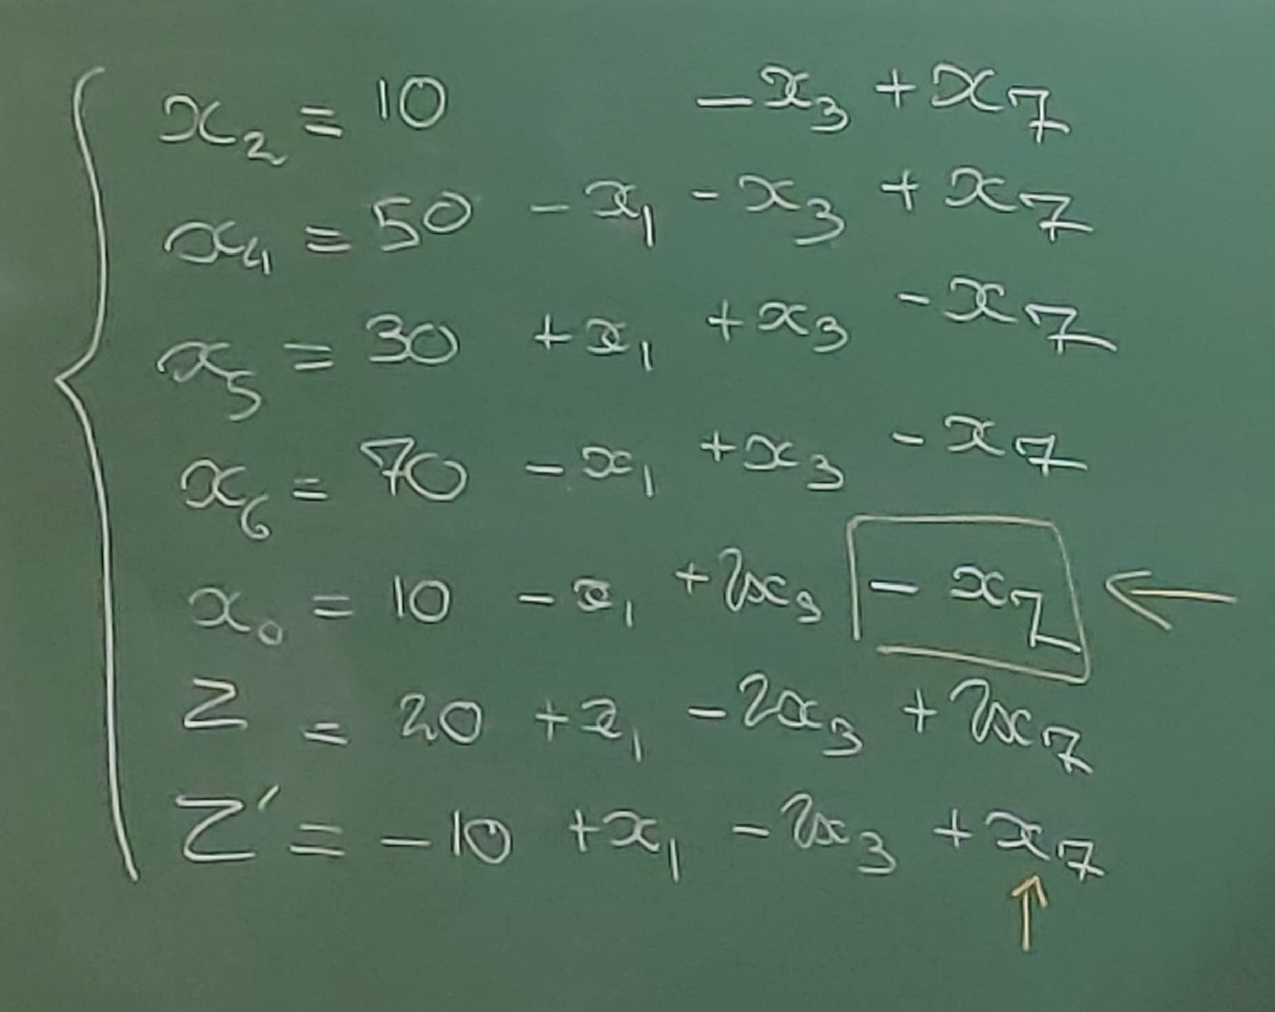 x₂ = 10 - x₃ + x₇
x₄ = 50 - x₁ - x₃ + x₇
x₅ = 30 + x₁ + x₃ - x₇
x₆ = 70 - x₁ + x₃ - x₇
x₀ = 10 - x₁ + 2x₃ - x₇
Z = 20 + x₁ - 2x₃ + 2x₇
Z' = -10 + x₁ - 2x₃ + x₇